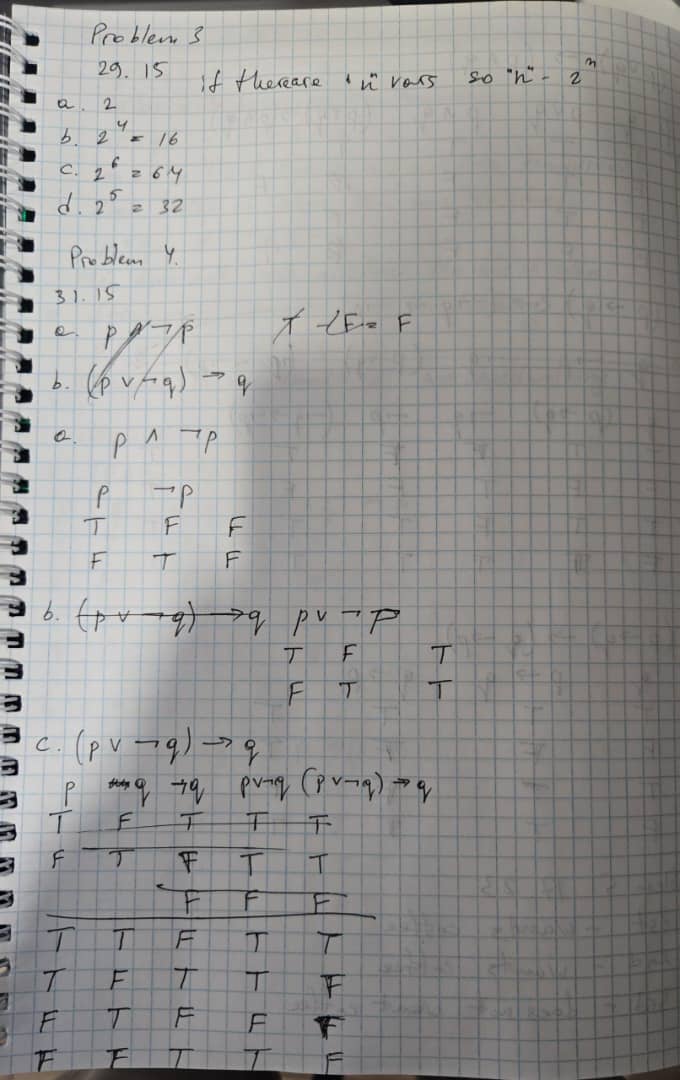 Problem 3
29. 15 if thereare "n" vars so "n" - 2^n
a. 2
b. 2^4 = 16
c. 2^6 = 64
d. 2^5 = 32
Problem 4.
31. 15
a. p ∧ ¬p T F = F
b. (p ∨ ¬q) → q
a. p ∧ ¬p
p ¬p
T F F
F T F
b. (p ∨ ¬q) → q p ∨ ¬p
T F T
F T T
c. (p ∨ ¬q) → q
p q ¬q p∨¬q (p∨¬q) → q
T F T T T
F T F T T
F F F
T T F T T
T F T T F
F T F F
F F T T F